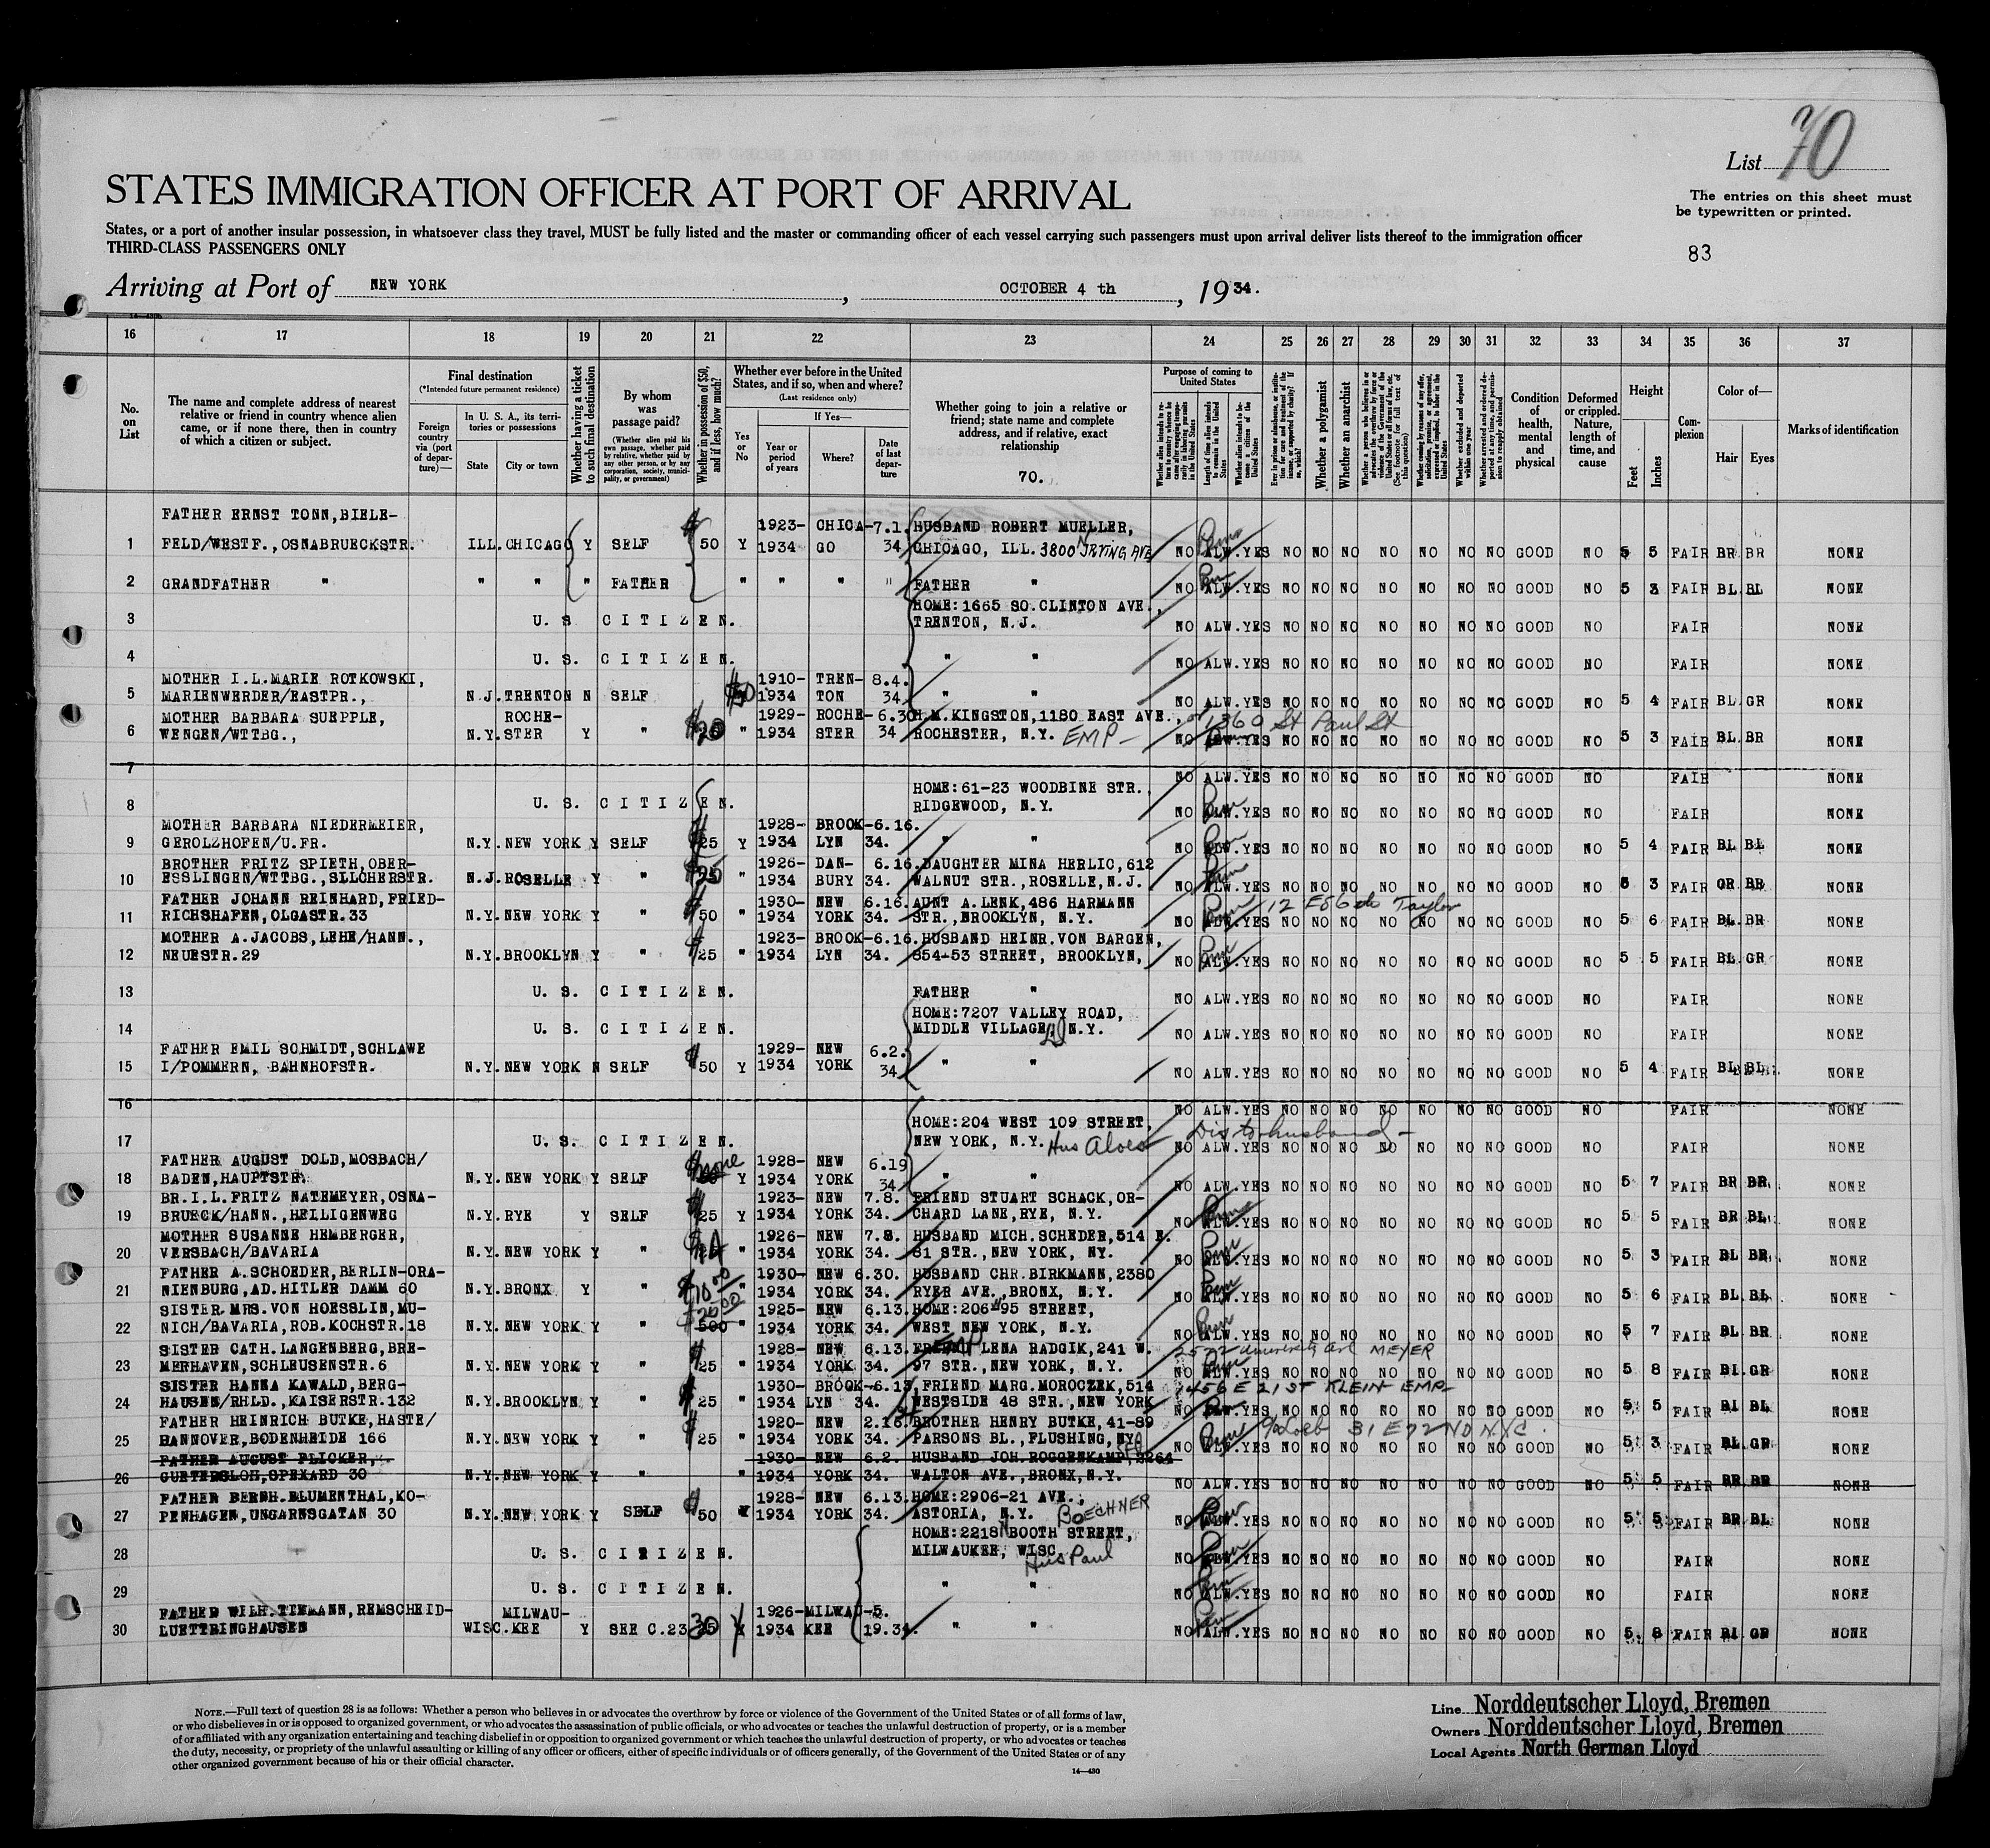 70
List
The entries on this sheet must
be typewritten or printed.
STATES IMMIGRATION OFFICER AT PORT OF ARRIVAL
States, or a port of another insular possession, in whatsoever class they travel, MUST be fully listed and the master or commanding officer of each vessel carrying such passengers must upon arrival deliver lists thereof to the immigration officer
THIRD-CLASS PASSENGERS ONLY
83
Arriving at Port of NEW YORK, OCTOBER 4 th, 1934.
16 17 18 19 20 21 22 23 24 25 26 27 28 29 30 31 32 33 34 35 36 37
No. on List
The name and complete address of nearest relative or friend in country whence alien came, or if none there, then in country of which a citizen or subject.
Final destination
(*Intended future permanent residence)
Foreign country via (port of departure)—
In U. S. A., its territories or possessions
State
City or town
Whether having a ticket to such final destination
By whom was passage paid?
(Whether alien paid his own passage, whether paid by relative, whether paid by any other person, or by any corporation, society, municipality, or government)
Whether in possession of $50, and if less, how much?
Whether ever before in the United States, and if so, when and where?
(Last residence only)
Yes or No
If Yes—
Year or period of years
Where?
Date of last departure
Whether going to join a relative or friend; state name and complete address, and if relative, exact relationship
70.
Purpose of coming to United States
Length of time alien intends to remain in the United States
Whether alien intends to become a citizen of the United States
Whether a polygamist
Whether an anarchist
Condition of health, mental and physical
Deformed or crippled. Nature, length of time, and cause
Height
Feet
Inches
Complexion
Color of—
Hair
Eyes
Marks of identification
FATHER ERNST TONN, BIELE- 1923- CHICA- 7.1. HUSBAND ROBERT MUELLER,
1 FELD/WESTF., OSNABRUECKSTR. ILL. CHICAGO Y SELF $50 Y 1934 GO 34 CHICAGO, ILL. 3800 N IRVING AVE NO ALW. YES NO NO NO NO NO NO NO GOOD NO 5 5 FAIR BR. BR NONE
2 GRANDFATHER " " " " FATHER " " " " FATHER " NO ALW. YES NO NO NO NO NO NO NO GOOD NO 5 3 FAIR BL. BL NONE
HOME: 1665 SO. CLINTON AVE.,
3 U. S CITIZEN. TRENTON, N.J. NO ALW. YES NO NO NO NO NO NO NO GOOD NO FAIR NONE
4 U. S. CITIZEN. " " NO ALW. YES NO NO NO NO NO NO NO GOOD NO FAIR NONE
MOTHER I.L. MARIE ROTKOWSKI, 1910- TREN- 8.4.
5 MARIENWERDER/EASTPR., N.J. TRENTON N SELF 1934 TON 34 " " NO ALW. YES NO NO NO NO NO NO NO GOOD NO 5 4 FAIR BL. GR NONE
MOTHER BARBARA SUEPPLE, ROCHE- 1929- ROCHE- 6.30 H.M. KINGSTON, 1180 EAST AVE., or 1360 St Paul St
6 WENGEN/WTTBG., N.Y. STER Y " " 1934 STER 34 ROCHESTER, N.Y. EMP- NO ALW. YES NO NO NO NO NO NO NO GOOD NO 5 3 FAIR BL. BR NONE
7 NO ALW. YES NO NO NO NO NO NO NO GOOD NO FAIR NONE
HOME: 61-23 WOODBINE STR.,
8 U. S. CITIZEN. RIDGEWOOD, N.Y. NO ALW. YES NO NO NO NO NO NO NO GOOD NO FAIR NONE
MOTHER BARBARA NIEDERMEIER, 1928- BROOK- 6.16.
9 GEROLZHOFEN/U.FR. N.Y. NEW YORK Y SELF $25 Y 1934 LYN 34. " " NO ALW. YES NO NO NO NO NO NO NO GOOD NO 5 4 FAIR BL BL NONE
BROTHER FRITZ SPIETH, OBER- 1926- DAN- 6.16. DAUGHTER MINA HERLIC, 612
10 ESSLINGEN/WTTBG., SILCHERSTR. N.J. ROSELLE Y " $25 " 1934 BURY 34. WALNUT STR., ROSELLE, N.J. NO ALW. YES NO NO NO NO NO NO NO GOOD NO 5 3 FAIR GR BR NONE
FATHER JOHANN REINHARD, FRIED- 1930- NEW 6.16. AUNT A. LENK, 486 HARMANN 12 E 86 Taylor
11 RICHSHAFEN, OLGASTR. 33 N.Y. NEW YORK Y " $50 " 1934 YORK 34. STR., BROOKLYN, N.Y. NO ALW. YES NO NO NO NO NO NO NO GOOD NO 5 6 FAIR BL. BR NONE
MOTHER A. JACOBS, LEHE/HANN., 1923- BROOK- 6.16. HUSBAND HEINR. VON BARGEN,
12 NEUESTR. 29 N.Y. BROOKLYN Y " $25 " 1934 LYN 34. 854-53 STREET, BROOKLYN, NO ALW. YES NO NO NO NO NO NO NO GOOD NO 5 5 FAIR BL. GR NONE
13 U. S. CITIZEN. FATHER " NO ALW. YES NO NO NO NO NO NO NO GOOD NO FAIR NONE
HOME: 7207 VALLEY ROAD,
14 U. S. CITIZEN. MIDDLE VILLAGE, N.Y. NO ALW. YES NO NO NO NO NO NO NO GOOD NO FAIR NONE
FATHER EMIL SCHMIDT, SCHLAWE 1929- NEW 6.2.
15 I/POMMERN, BAHNHOFSTR. N.Y. NEW YORK N SELF $50 Y 1934 YORK 34 " " NO ALW. YES NO NO NO NO NO NO NO GOOD NO 5 4 FAIR BL. BL. NONE
16 NO ALW. YES NO NO NO NO NO NO NO GOOD NO FAIR NONE
HOME: 204 WEST 109 STREET, Dis to husband-
17 U. S. CITIZEN. NEW YORK, N.Y. Hus NO ALW. YES NO NO NO NO NO NO NO GOOD NO FAIR NONE
FATHER AUGUST DOLD, MOSBACH/ none 1928- NEW 6.19
18 BADEN, HAUPTSTR. N.Y. NEW YORK Y SELF Y 1934 YORK 34 " " NO ALW. YES NO NO NO NO NO NO NO GOOD NO 5 7 FAIR BR BR. NONE
BR. I.L. FRITZ NATEMEYER, OSNA- 1923- NEW 7.8. FRIEND STUART SCHACK, OR-
19 BRUECK/HANN., HEILIGENWEG N.Y. RYE Y SELF $25 Y 1934 YORK 34. CHARD LANE, RYE, N.Y. NO ALW. YES NO NO NO NO NO NO NO GOOD NO 5 5 FAIR BR BL NONE
MOTHER SUSANNE HEMBERGER, 1926- NEW 7.8. HUSBAND MICH. SCHEDER, 514 E.
20 VERSBACH/BAVARIA N.Y. NEW YORK Y " " 1934 YORK 34. 81 STR., NEW YORK, NY. NO ALW. YES NO NO NO NO NO NO NO GOOD NO 5 3 FAIR BL BR. NONE
FATHER A. SCHOEDER, BERLIN-ORA- 1930- NEW 6.30. HUSBAND CHR. BIRKMANN, 2380
21 NIENBURG, AD. HITLER DAMM 60 N.Y. BRONX Y " $10.00 " 1934 YORK 34. RYER AVE., BRONX, N.Y. NO ALW. YES NO NO NO NO NO NO NO GOOD NO 5 6 FAIR BL. BL NONE
SISTER MRS. VON HOESSLIN, MU- 1925- NEW 6.13. HOME: 206 W 95 STREET,
22 NICH/BAVARIA, ROB. KOCHSTR. 18 N.Y. NEW YORK Y 500 " 1934 YORK 34. WEST NEW YORK, N.Y. NO ALW. YES NO NO NO NO NO NO NO GOOD NO 5 7 FAIR BL BR. NONE
SISTER CATH. LANGENBERG, BRE- 1928- NEW 6.13. FRIEND EMP LENA RADGIK, 241 W. University Ave MEYER
23 MERHAVEN, SCHLEUSENSTR. 6 N.Y. NEW YORK Y " $25 " 1934 YORK 34. 97 STR., NEW YORK, N.Y. NO ALW. YES NO NO NO NO NO NO NO GOOD NO 5 8 FAIR BL. GR NONE
SISTER HANNA KAWALD, BERG- 1930- BROOK- 6.13. FRIEND MARG. MOROCZEK, 514 1456 E 21 ST KLEIN- EMP-
24 HAUSEN/RHLD., KAISERSTR. 132 N.Y. BROOKLYN Y " $25 " 1934 LYN 34. WESTSIDE 48 STR., NEW YORK NO YES NO NO NO NO NO NO NO GOOD NO 5 5 FAIR BL BL NONE
FATHER HEINRICH BUTKE, HASTE/ 1920- NEW 2.16. BROTHER HENRY BUTKE, 41-89 c/o Loeb 31 E 72 ND NYC.
25 HANNOVER, BODENHEIDE 166 N.Y. NEW YORK Y " $25 " 1934 YORK 34. PARSONS BL., FLUSHING, NY NO ALW. YES NO NO NO NO NO NO NO GOOD NO 5 3 FAIR BL. GR NONE
FATHER AUGUST FLICKER, 1930- NEW 6.2. HUSBAND JOH. ROGGENKAMP, 2264
26 GUETERSLOH, SPEXARD 30 N.Y. NEW YORK Y " " " 1934 YORK 34. WALTON AVE., BRONX, N.Y. NO ALW. YES NO NO NO NO NO NO NO GOOD NO 5 5 FAIR BR BR NONE
FATHER BERNH. BLUMENTHAL, KO- 1928- NEW 6.13. HOME: 2906-21 AVE.,
27 PENHAGEN, UNGARNSGATAN 30 N.Y. NEW YORK Y SELF $50 Y 1934 YORK 34. ASTORIA, N.Y. BOECHNER NO ALW. YES NO NO NO NO NO NO NO GOOD NO 5 5 FAIR BR BL NONE
HOME: 2218 N BOOTH STREET,
28 U. S. CITIZEN. MILWAUKEE, WISC. Hus Paul NO ALW. YES NO NO NO NO NO NO NO GOOD NO FAIR NONE
29 U. S. CITIZEN. " " NO ALW. YES NO NO NO NO NO NO NO GOOD NO FAIR NONE
FATHER WILH. TIEMANN, REMSCHEID- MILWAU- 1926- MILWAU- 5.
30 LUETTRINGHAUSEN WISC. KEE Y SEE C.23 30 Y 1934 KEE 19.34. " " NO ALW. YES NO NO NO NO NO NO NO GOOD NO 5 8 FAIR BL GR NONE
NOTE.—Full text of question 28 is as follows: Whether a person who believes in or advocates the overthrow by force or violence of the Government of the United States or of all forms of law,
or who disbelieves in or is opposed to organized government, or who advocates the assassination of public officials, or who advocates or teaches the unlawful destruction of property, or is a member
of or affiliated with any organization entertaining and teaching disbelief in or opposition to organized government or which teaches the unlawful destruction of property, or who advocates or teaches
the duty, necessity, or propriety of the unlawful assaulting or killing of any officer or officers, either of specific individuals or of officers generally, of the Government of the United States or of any
other organized government because of his or their official character.
14—430
Line Norddeutscher Lloyd, Bremen
Owners Norddeutscher Lloyd, Bremen
Local Agents North German Lloyd